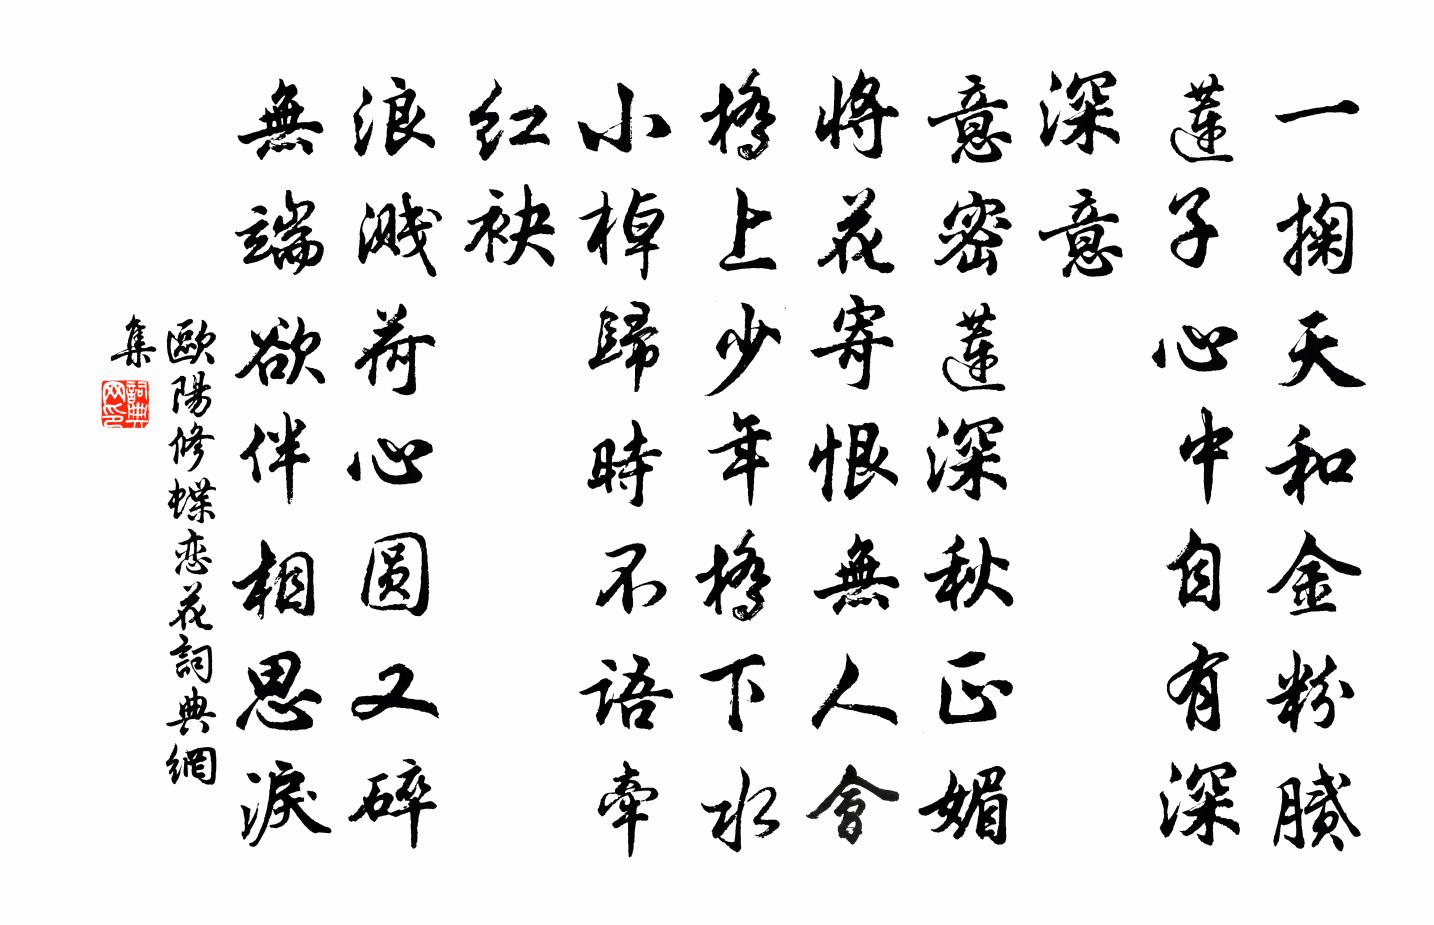 一掬天和金粉腻
莲子心中自有深
深意
意密莲深秋正媚
將花寄恨無人會
橋上少年橋下水
小棹歸時不语牽
红袂
浪溅荷心圆又碎
無端欲伴相思淚
歐陽修蝶恋花詞典網
集
詞典网印